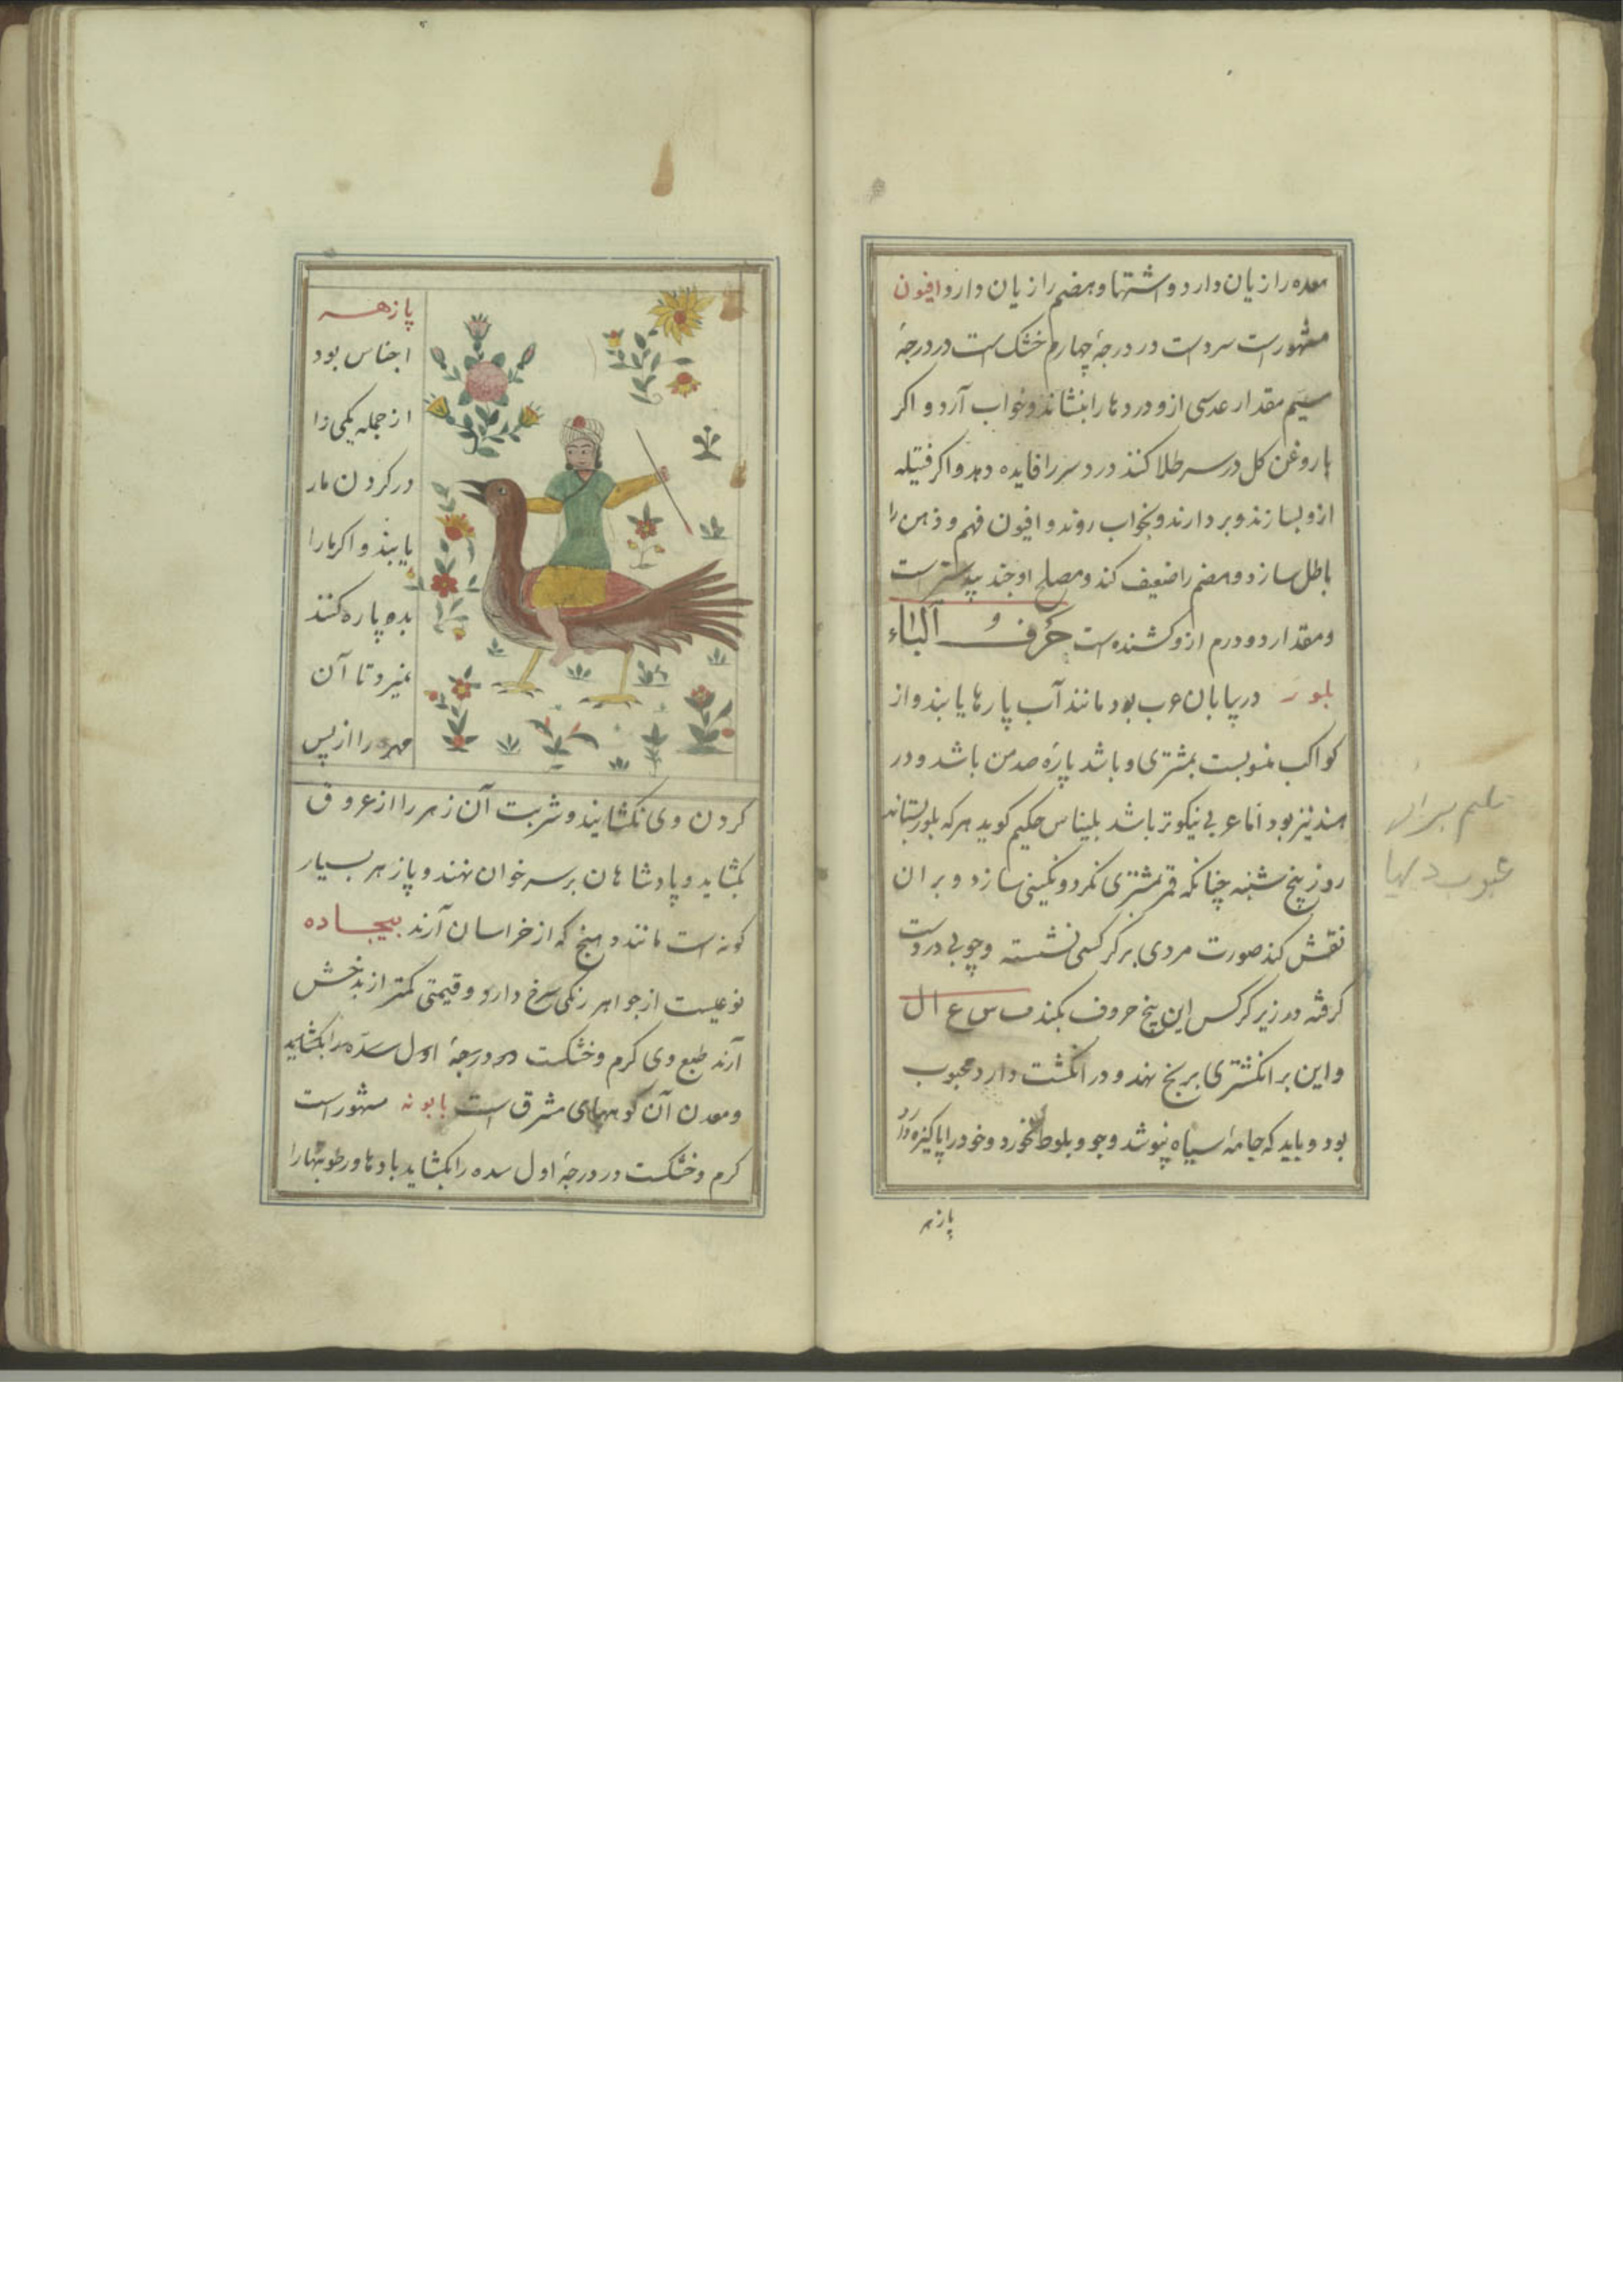 معده را زیان دارد و اشتها و هضم را زیان دارد افیون
مشهور است سرد است در درجهٔ چهارم خشک است در درجهٔ
سیم مقدار عدسی ازو دردها را بنشاند و خواب آرد و اکر
با روغن کل در سر طلا کنند درد سر را فایده دهد و اکر فتیله
ازو بسازند و بردارند و بخواب روند و افیون فهم و ذهن را
باطل سازد و هضم را ضعیف کند و مصلح او جند بیدسترست
و مقدار دو درم ازو کشنده است حرف الباء
بلور در بیابان عرب بود مانند آب پارها یابند و از
کواکب منسوبست بمشتری و باشد پارهٔ صد من باشد و در
هند نیز بود اما عربی نیکوتر باشد بلیناس حکیم کوید هر که بلور بستاند
روز پنج شنبه چنانکه قمر بمشتری نکرد و نکینی سازد و بر ان
نقش کند صورت مردی بر کرکسی نشسته و چوبی در دست
کرفته در زیر کرکس این پنج حروف بکند ف س ع ا ل
و این بر انکشتری برنج نهد و در انکشت دارد محبوب
بود و باید که جامهٔ سیاه نپوشد و جو و بلوط نخورد و خود را پاکیزه دارد
پازهر
پازهـر
اجناس بود
از جمله یکی را
در کردن مار
یابند و اکر ما را
بده پاره کنند
نمیرد تا آن
مهره را از پس
کردن وی نکشایند و شربت آن زهر را از عروق
بکشاید و پادشاهان بر سر خوان نهند و پازهر بسیار
کونه است مانند دهنج که از خراسان آرند بیجـاده
نوعیست از جواهر رنکی سرخ دارد و قیمتی کمتر از بدخش
آرند طبع وی کرم و خشکست در درجهٔ اول سدّه را بکشاید
و معدن آن کوههای مشرق است بابونه مشهور است
کرم و خشکست در درجهٔ اول سده را بکشاید بادها و رطوبتها را